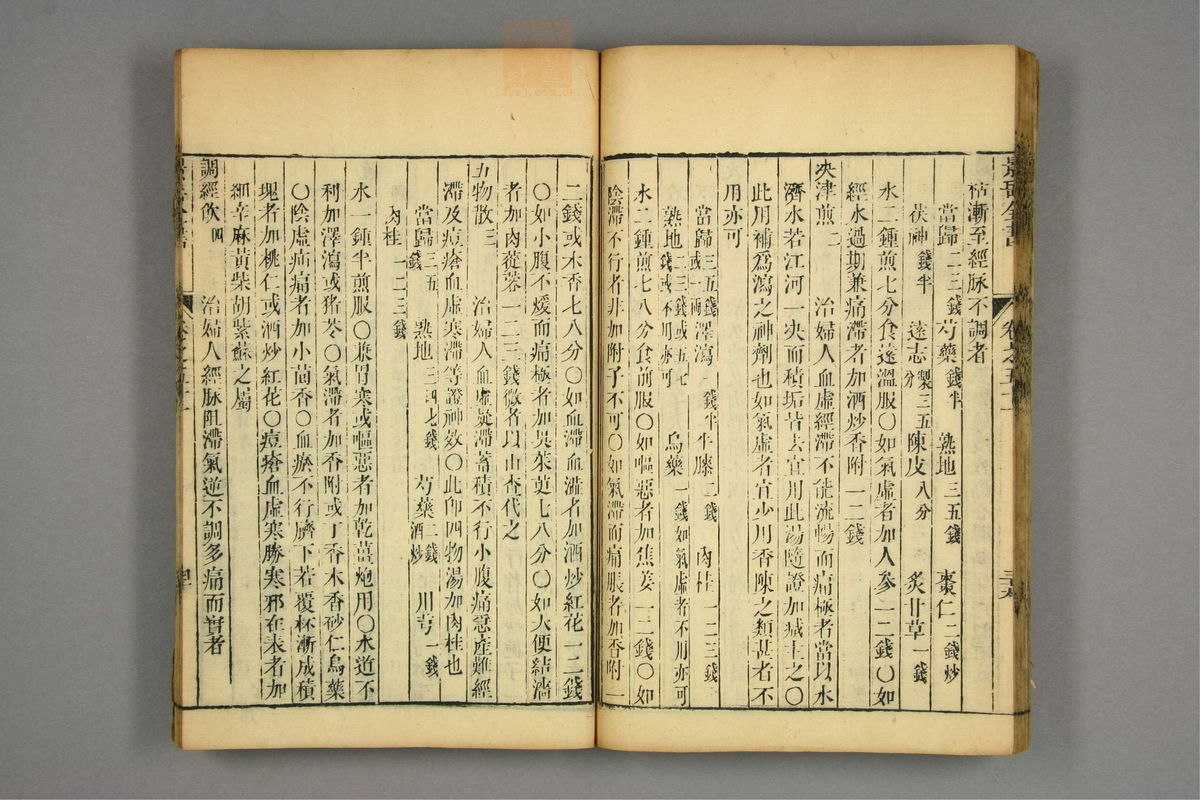 景岳全書 卷之五十一
枯漸至經脉不調者
當歸二三錢 芍藥錢半 熟地三五錢 棗仁二錢炒
茯神錢半 遠志製三五分 陳皮八分 炙甘草一錢
水二鍾煎七分食遠溫服○如氣虛者加人參一二錢○如
經水過期兼痛滯者加酒炒香附一二錢
決津煎二 治婦人血虛經滯不能流暢而痛極者當以水
濟水若江河一決而積垢皆去宜用此湯隨證加減主之○
此用補為瀉之神劑也如氣虛者宜少用香陳之類甚者不
用亦可
當歸三五錢或一兩 澤瀉錢半 牛膝二錢 肉桂一二三錢
熟地二三錢或五七錢或不用亦可 烏藥一錢如氣虛者不用亦可
水二鍾煎七八分食前服○如嘔惡者加焦姜一二錢○如
陰滯不行者非加附子不可○如氣滯而痛脹者加香附一
二錢或木香七八分○如血滯血澁者加酒炒紅花一二錢
○如小腹不煖而痛極者加吳茱萸七八分○如大便結濇
者加肉蓯蓉一二三錢微者以山查代之
五物散三 治婦人血虛凝滯蓄積不行小腹痛急產難經
滯及痘瘡血虛寒滯等證神效○此即四物湯加肉桂也
當歸三五錢 熟地三四七錢 芍藥二錢酒炒 川芎一錢
肉桂一二三錢
水一鍾半煎服○兼胃寒或嘔惡者加乾薑炮用○水道不
利加澤瀉或猪苓○氣滯者加香附或丁香木香砂仁烏藥
○陰虛疝痛者加小茴香○血瘀不行臍下若覆杯漸成積
塊者加桃仁或酒炒紅花○痘瘡血虛寒勝寒邪在表者加
細辛麻黃柴胡紫蘇之屬
調經飲四 治婦人經脉阻滯氣逆不調多痛而實者